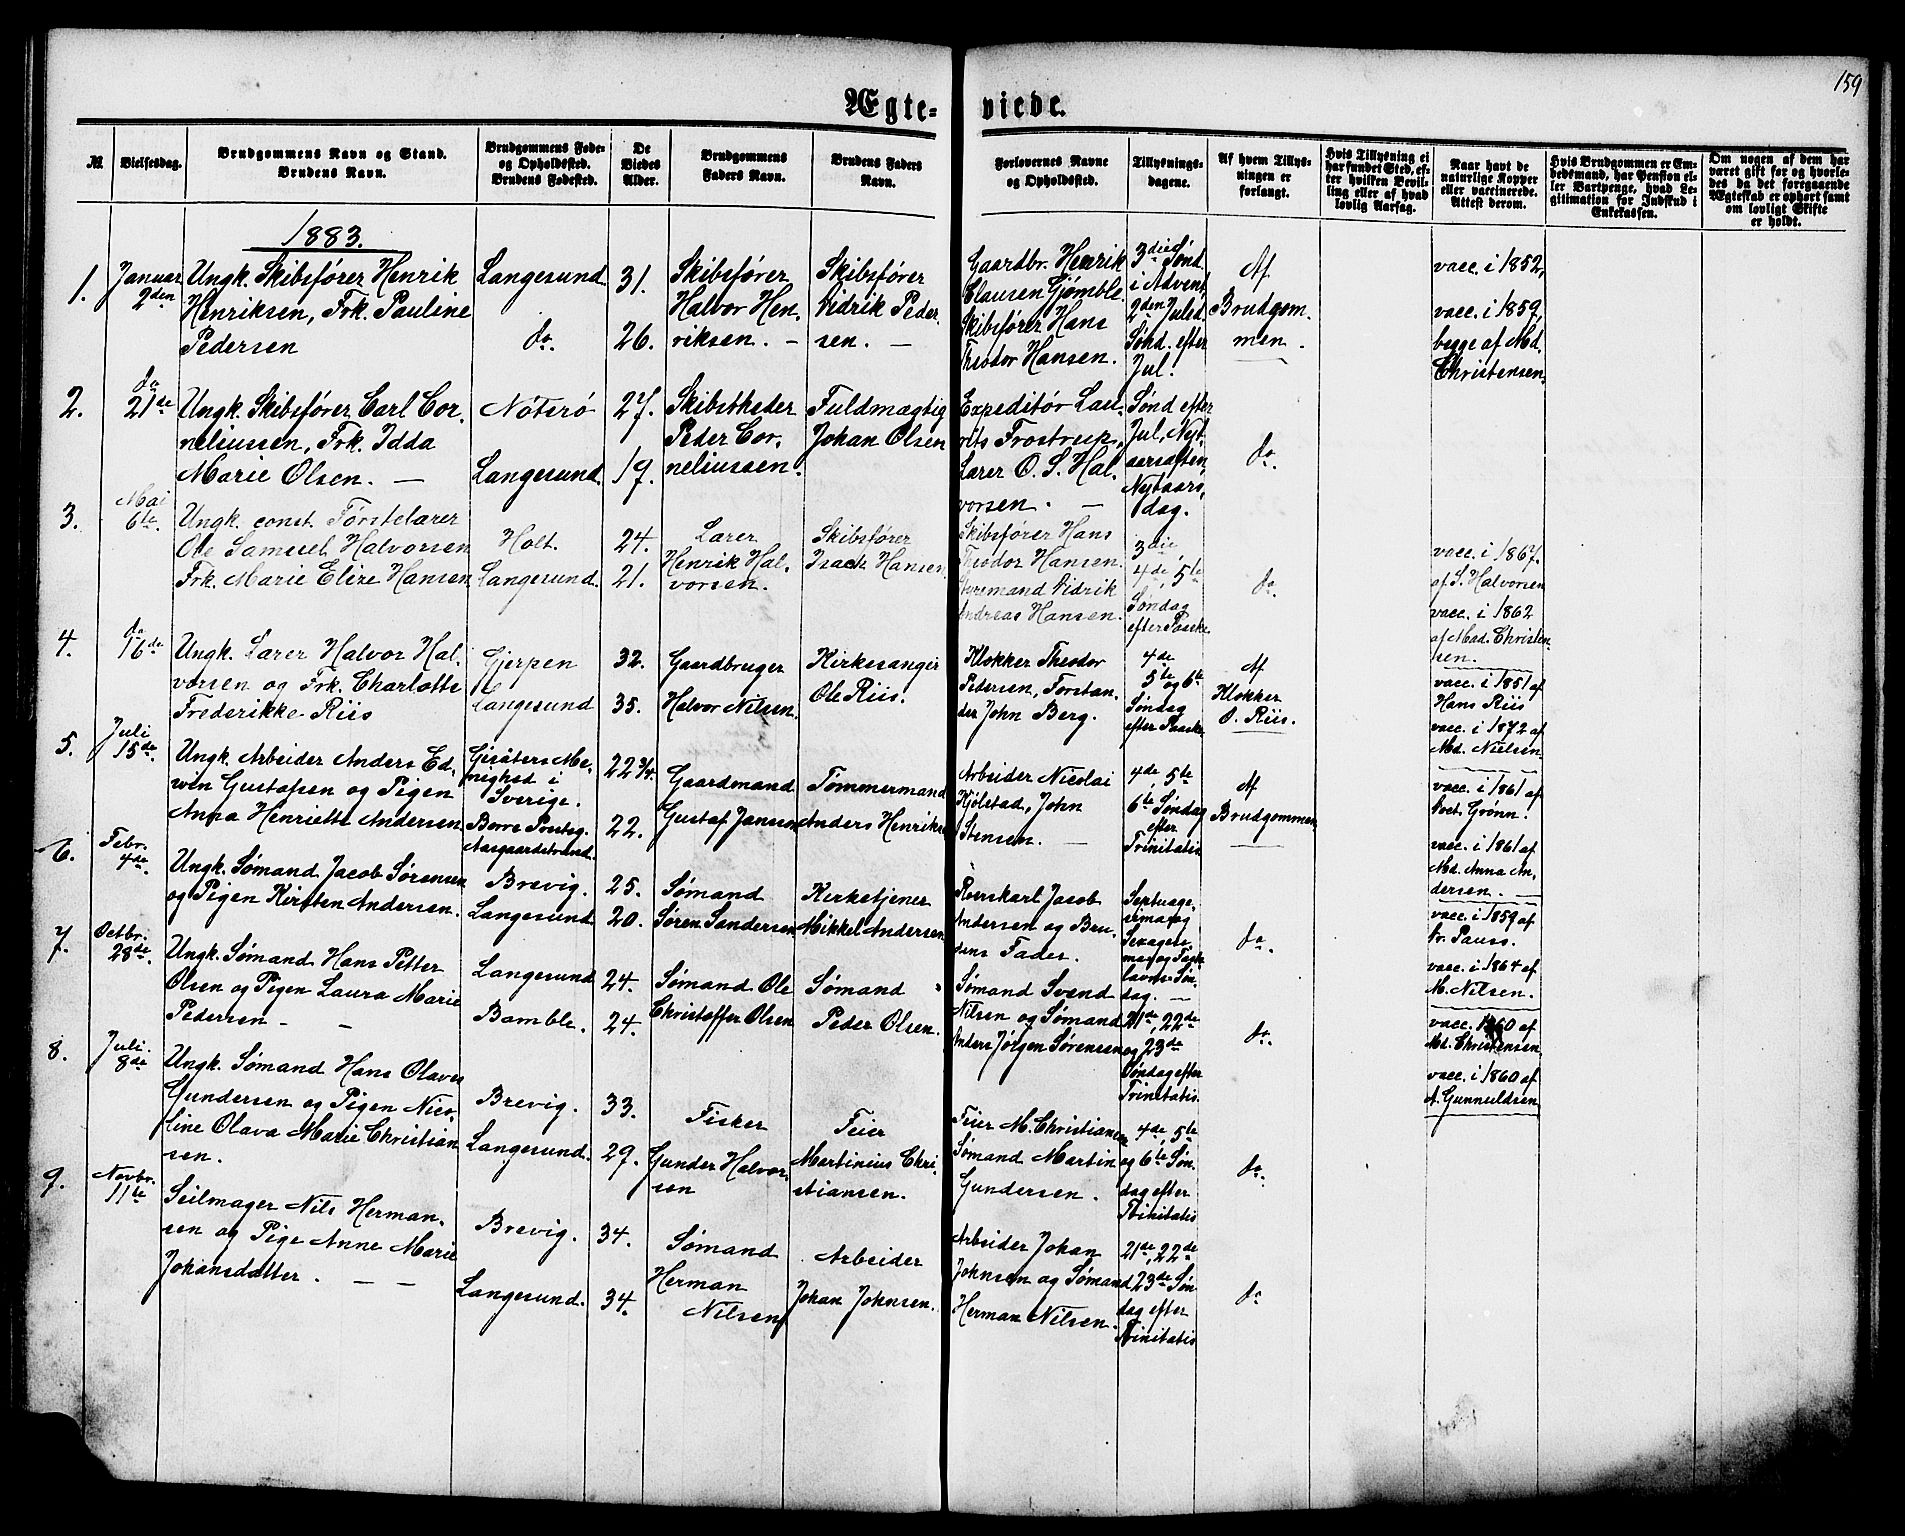 159
Ægte-
viede.
№
Vielsesdag.
Brudgommens Navn og Stand.
Brudens Navn.
Brudgommens Føde-
og Opholdsted.
Brudens Fødested.
De
Viedes
Alder.
Brudgommens
Faders Navn.
Brudens Faders
Navn.
Forlovernes Navne
og Opholdsted.
Tillysnings-
dagene.
Af hvem Tillys-
ningen er
forlangt.
Hvis Tillysning ei
har fundet Sted, ef-
ter hvilken Bevil-
ling eller af hvad
lovlig Aarsag.
Naar havt de
naturlige Kopper
eller vaccinerede.
Attest derom.
Hvis Brudgommen er Em-
bedsmand, har Pension el-
ler Vartpenge, hvad Le-
gitimation for Indskud i
Enkekassen.
Om nogen af dem har
været gift før og hvorle-
des da det foregaaende
Ægteskab er ophørt samt
om lovligt Skifte
er holdt.
1883.
1.
Januar
2den
Ungk. Skibsfører Henrik
Henriksen, Frk. Pauline
Pedersen
Langesund
do.
31.
26.
Skibsfører
Halvor Hen-
riksen. —
Skibsfører
Didrik Peder-
sen. —
Gaardbr. Henrik
Clausen Gjømble.
Skibsfører Hans
Theodor Hansen.
3die Sønd.
i Advent,
2den Juled.
Sønd. efter
Jul.
Af
Brudgom-
men.
vacc. i 1852,
vacc. i 1859,
begge af Md.
Christensen.
2.
do
21de
Ungk. Skibsfører Carl Cor-
neliussen, Frk. Idda
Marie Olsen. —
Nøterø
Langesund.
27.
19.
Skibsrheder
Peder Cor-
neliussen.
Fuldmægtig
Johan Olsen
Expeditør Lau-
rits Frostrup,
Lærer O. S. Hal-
vorsen. —
Sønd efter
Jul, Nyt-
aarsaften,
Nytaars-
dag.
do.
3.
Mai
6te.
Ungk. const. Førstelærer
Ole Samuel Halvorsen
Frk. Marie Elise Hansen
Holt.
Langesund.
24.
21.
Lærer
Henrik Hal-
vorsen.
Skibsfører
Isack Hansen.
Skibsfører Hans
Theodor Hansen.
Styremand Didrik
Andreas Hansen.
3die
4de, 5te
Søndag
efter Paaske
do.
vacc. i 1867.
af S. Halvorsen
vacc. i 1862
af Mad. Christen-
sen.
4.
do
16de
Ungk. Lærer Halvor Hal-
vorsen og Frk. Charlotte
Frederikke Riis
Gjerpen
Langesund
32.
35.
Gaardbruger
Halvor Nilsen.
Kirkesanger
Ole Riis.
Klokker Theodor
Pedersen, Forstan-
der John Berg.
4de
5te og 6te
Søndag
efter Paaske
Af
Klokker
O. Riis.
vacc. i 1851 af
Hans Riis
vacc. i 1872 af
Md. Nielsen.
5.
Juli
15de.
Ungk. Arbeider Anders Ed-
win Gustafsen og Pigen
Anna Henriette Andersen
Me-
nighed i
Sverige.
Borre Præsteg.
Aasgaardstrand.
22 3/4.
22.
Gaardmand
Gustaf Janson
Tømmermand
Anders Henriks.
Arbeider Nicolai
Kjølstad, John
Stensen. —
4de, 5te
6te Søndag
efter
Trinitatis
Af
Brudgommen
vacc. i 1861 af
Doct. Grønn.
vacc. i 1861 af
Md. Anna An-
dersen. —
6.
Febr.
4de.
Ungk. Sømand Jacob Sørensen
og Pigen Kirsten Andersen.
Brevig.
Langesund
25.
20.
Sømand
Søren Sandersen
Kirketjener
Mikkel Andersen
Roerskarl Jacob
Andersen og Bru-
dens Fader.
Septuage-
sima og
Sexagesi-
ma og Faste-
lavns Søn-
dag. —
do.
vacc. i 1859 af
Dr. Pauss.
vacc. i 1864 af
M. Nilsen.
7.
Octbr.
28de.
Ungk. Sømand Hans Petter
Olsen og Pigen Laura Marie
Pedersen — —
Langesund
Bamble.
24.
24.
Sømand Ole
Christoffer Olsen
Sømand
Peder Olsen.
Sømand Svend
Nilsen og Sømand
Anders Jørgen Sørensen
21de, 22de
og 23de
Søndag efter
Trinitatis.
do.
vacc. 1860 af
Md. Christensen
vacc. i 1860 af
A. Gunnuldsen
8.
Juli.
8de
Ungk. Sømand Hans Olaves
Gundersen og Pigen Nico-
line Olava Marie Christian-
sen.
Brevig.
Langesund.
33.
29.
Fisker
Gunder Halvor-
sen
Feier
Martinius Chri-
stiansen.
Feier M. Christiansen
Sømand Martin
Gundersen.
4de, 5te
og 6te Søn-
dag efter
Trinitatis
do.
9.
Novbr.
11te
Seilmager Nils Herman-
sen og Pige Anne Marie
Johansdatter. — —
Brevig.
Langesund.
34.
34.
Sømand
Herman
Nilsen
Arbeider
Johan Johnsen.
Arbeider Johan
Johnsen og Sømand
Herman Nilsen.
21de, 22de
23de Søn-
dag efter
Trinitatis
do